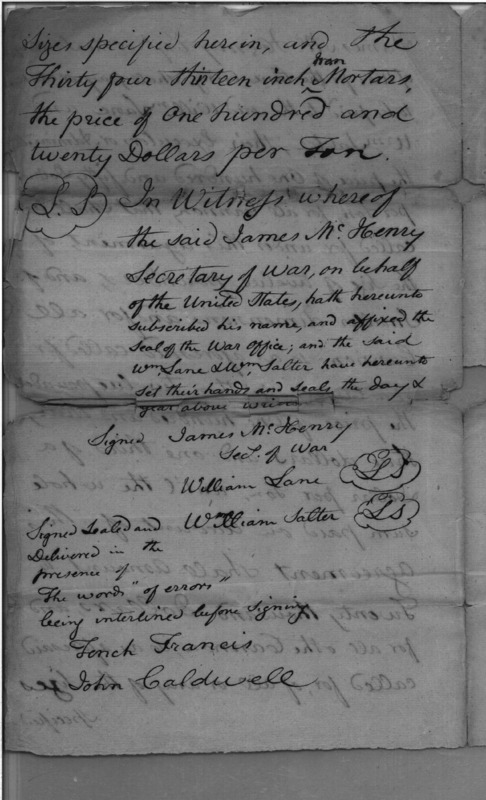 Sizes specified herein, and the
Thirty four thirteen inch Iron Mortars,
the price of One hundred and
twenty Dollars per Ton.
L.S In Witness whereof
the said James Mc Henry
Secretary of War, on behalf
of the United States, hath hereunto
subscribed his name, and affixed the
seal of the War Office; and the said
Wm Lane & Wm Salter have hereunto
set their hands and seals the day &
year above
Signed James Mc Henry
Secy. of War
William Lane LS
William Salter LS
Signed Sealed and
Delivered in the
presence of
The words "of errors"
being interlined before signing
Tench Francis
John Caldwell